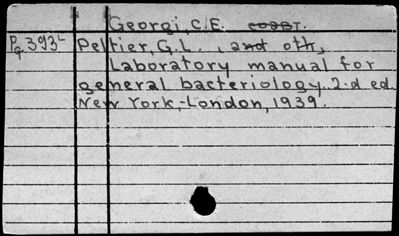 Georgi, C.E. соавт.
P 393L Peltier, G.L., and oth,
G
Laboratory manual for
general bacteriology. 2-d ed.
New York,-London, 1939.